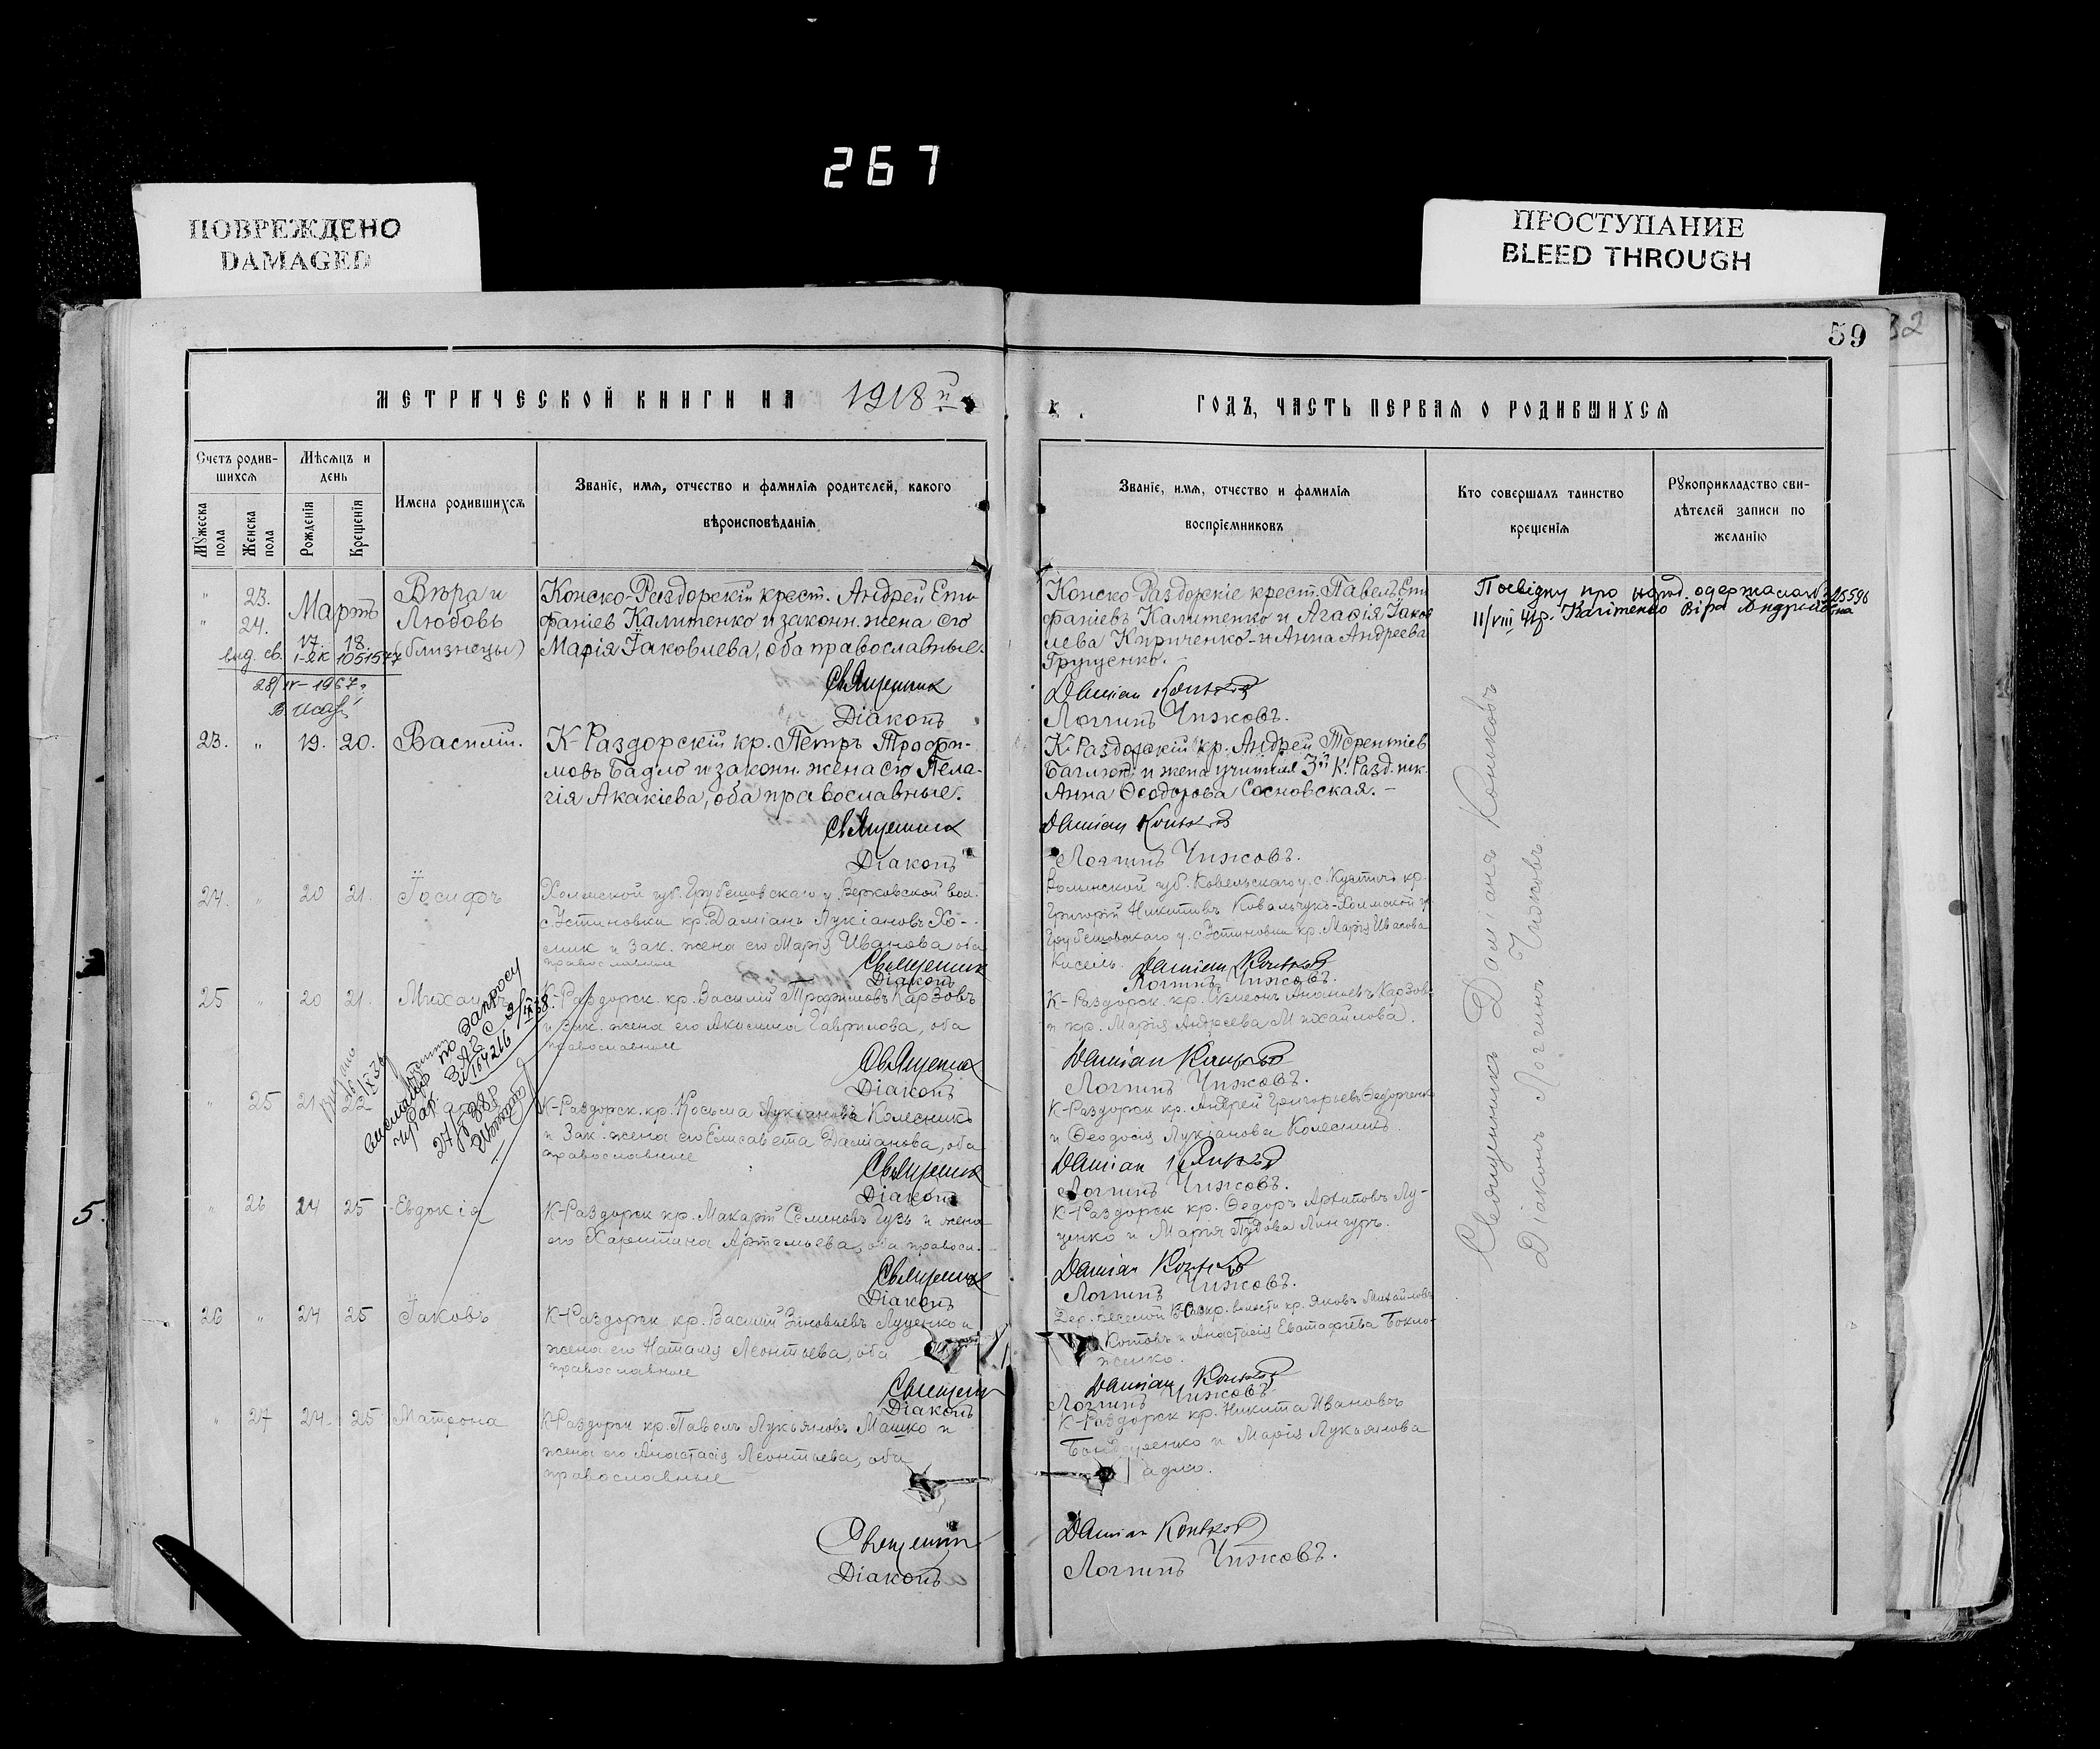 267
ПОВРЕЖДЕНО
DAMAGED
ПРОСТУПАНИЕ
BLEED THROUGH
59
32
МЕТРИЧЕСКОЙ КНИГИ НА 1918 й
ГОДЪ, ЧАСТЬ ПЕРВАЯ О РОДИВШИХСЯ
Счетъ родив-
шихся
Мужеска пола
Женска пола
Мѣсяцъ и
день
Рожденія
Крещенія
Имена родившихся
Званіе, имя, отчество и фамилія родителей, какого
вѣроисповѣданія
Званіе, имя, отчество и фамилія
воспріемниковъ
Кто совершалъ таинство
крещенія
Рукоприкладство сви-
дѣтелей записи по
желанію
" 23.
" 24.
Мартъ
17. 18.
Вѣра и
Любовь
(близнецы)
вид. св. I-ЯК 1051577
28/IV-1967г
Конско-Раздорскій крест. Андрей Епи-
фаніев Калитенко и законн. жена его
Марія Іаковлева, оба православные.
Священник
Діаконъ
Конско-Раздорскіе крест. Павелъ Епи
фаніевъ Калитенко и Агафія Іаков
лева Кириченко и Анна Андреева
Грущенко.
Damian
Логгинъ Чижовъ.
Посвідку про одержала № 25596
11/VIII 41р. Калітенко Віра Андріївна
23. " 19. 20. Василій.
К-Раздорскій кр. Петръ Трофи-
мовъ Бадло и законн. жена его Пела-
гія Акакіева, оба православные.
Священник
Діаконъ
К-Раздорскій кр. Андрей Терентіев
и жена учителя 3й К. Разд. шк.
Анна Ѳеодорова Сосновская.-
Damian
Логгинъ Чижовъ.
24. " 20 21. Іосифъ
Холмской губ. Грубешовскаго у. вол.
с. Устиновка кр. Даміанъ Лукіановъ Хо-
мик и зак. жена его Марія Иванова оба
православные
Священник
Діаконъ
Волынской губ. Ковельскаго у. с. кр.
Григорій Никитивъ Ковальчукъ-Холмской г
Грубешовскаго у. с. Устиновки кр. Марія Иванова
Кисель.
Damian
Логгинъ Чижовъ.
25 " 20 21. Михаилъ
К-Раздорск. кр. Василій Трофимовъ Карзовъ
и зак. жена его Акилина Гаврилова, оба
православные
Священник
Діаконъ
К-Раздорск. кр. Симеонъ Ананьевъ Карзовъ
и кр. Марія Андреева Михайлова.
Damian
Логгинъ Чижовъ.
по запросу
ЗАГС
№ 164216
" 25 21 22
К-Раздорск. кр. Косьма Лукіановъ Колесникъ
и зак. жена его Елисавета Даміанова, оба
православные
Священник
Діаконъ
К-Раздорск кр. Андрей Григорьевъ Ѳедорченко
и Ѳеодосія Лукіанова Колесникъ.
Damian
Логгинъ Чижовъ.
5.
" 26 24 25 Евдокія
К-Раздорск кр. Макарій Семеновъ Гузь и жена
его Харитина Артемьева, оба правосл.
Священник
Діаконъ
К-Раздорск кр. Ѳедоръ Архиповъ Лу-
ценко и Марія Лингуръ.
Damian
Логгинъ Чижовъ.
26 " 24 25 Іаковъ
К-Раздорск кр. Василій Зиновьевъ Луценко и
жена его Наталія Леонтьева, оба
православные
Священник
Діаконъ
Дер. Веселой волости кр. Яковъ Михайловъ
Котовъ и Анастасія Евстафіева Бокло-
женко.
Damian
Логгинъ Чижовъ
" 27 24. 25 Матрона
К-Раздорск кр. Павелъ Лукьяновъ Машко и
жена его Анастасія Леонтьева, оба
православные
Священник
Діаконъ
К-Раздорск кр. Никита Ивановъ
Бондаренко и Марія Лукьянова
Damian
Логгинъ Чижовъ.
Священникъ Даміанъ Коньковъ
Діаконъ Логгинъ Чижовъ